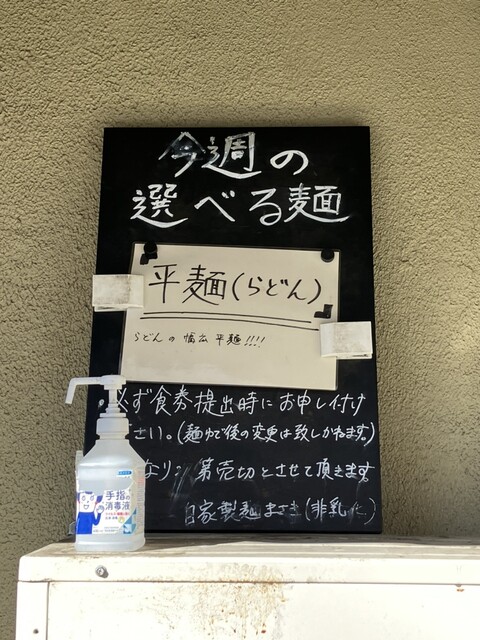 今週の
選べる麺
平麺(らどん)
らどんの幅広平麺!!!!
必ず食券提出時にお申し付け
さい。(麺ゆで後の変更は致しかねます。)
なり 第売切とさせて頂きます
自家製麺まさき(非乳化)
手指の
消毒液